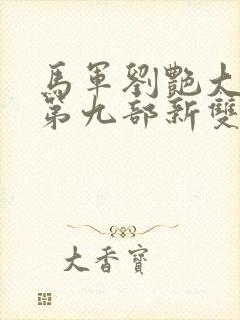 馬軍劉艷大
第九部新雙
大香寶